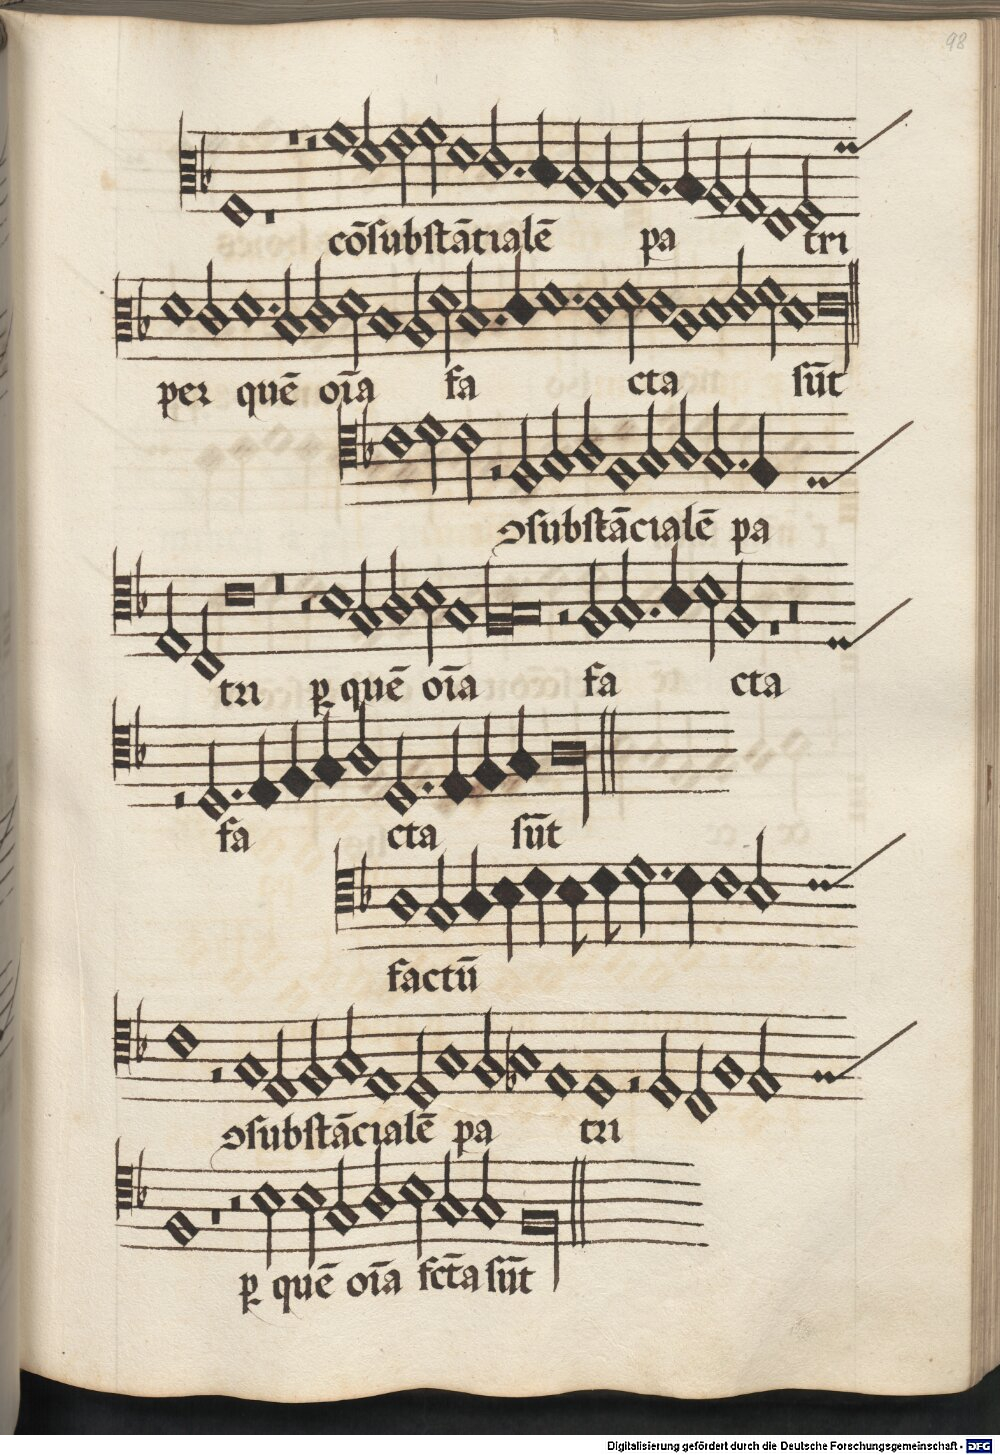 98
cōſubſtācialē pa tri
per quē oīa fa cta ſūt
ↄſubſtācialē pa
tri ꝑ quē oīa fa cta
fa cta ſūt
factū
ↄſubſtācialē pa tri
ꝑ quē oīa fc̄ta ſūt
Digitalisierung gefördert durch die Deutsche Forschungsgemeinschaft - DFG